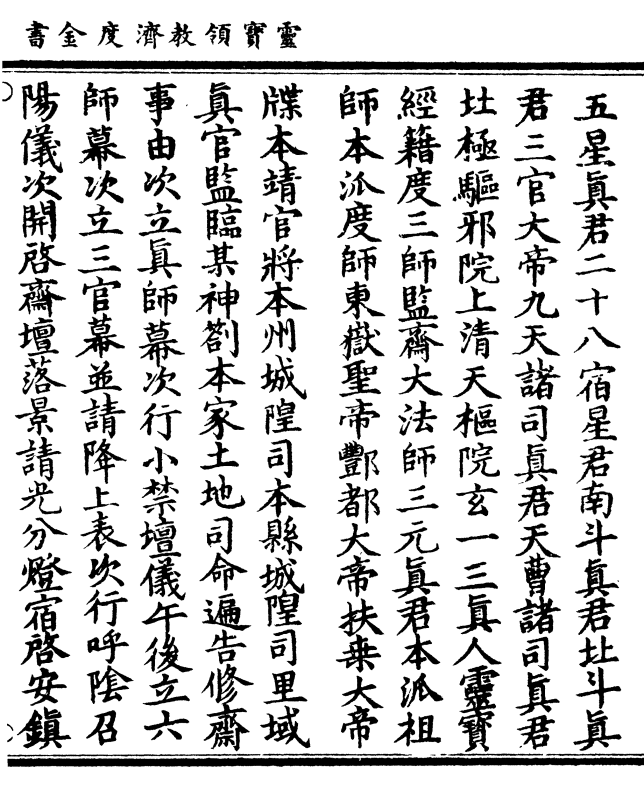 靈寶領教濟度金書
五星真君二十八宿星君南斗真君北斗真
君三官大帝九天諸司真君天曹諸司真君
北極驅邪院上清天樞院玄一三真人靈寶
經籍度三師監齋大法師三元真君本派祖
師本派度師東嶽聖帝酆都大帝扶桒大帝
牒本靖官將本州城隍司本縣城隍司里域
真官監臨某神劄本家土地司命遍告修齋
事由次立真師幕次行小禁壇儀午後立六
師幕次立三官幕並請降上表次行呼陰召
陽儀次開啓齋壇落景請光分燈宿啓安鎮